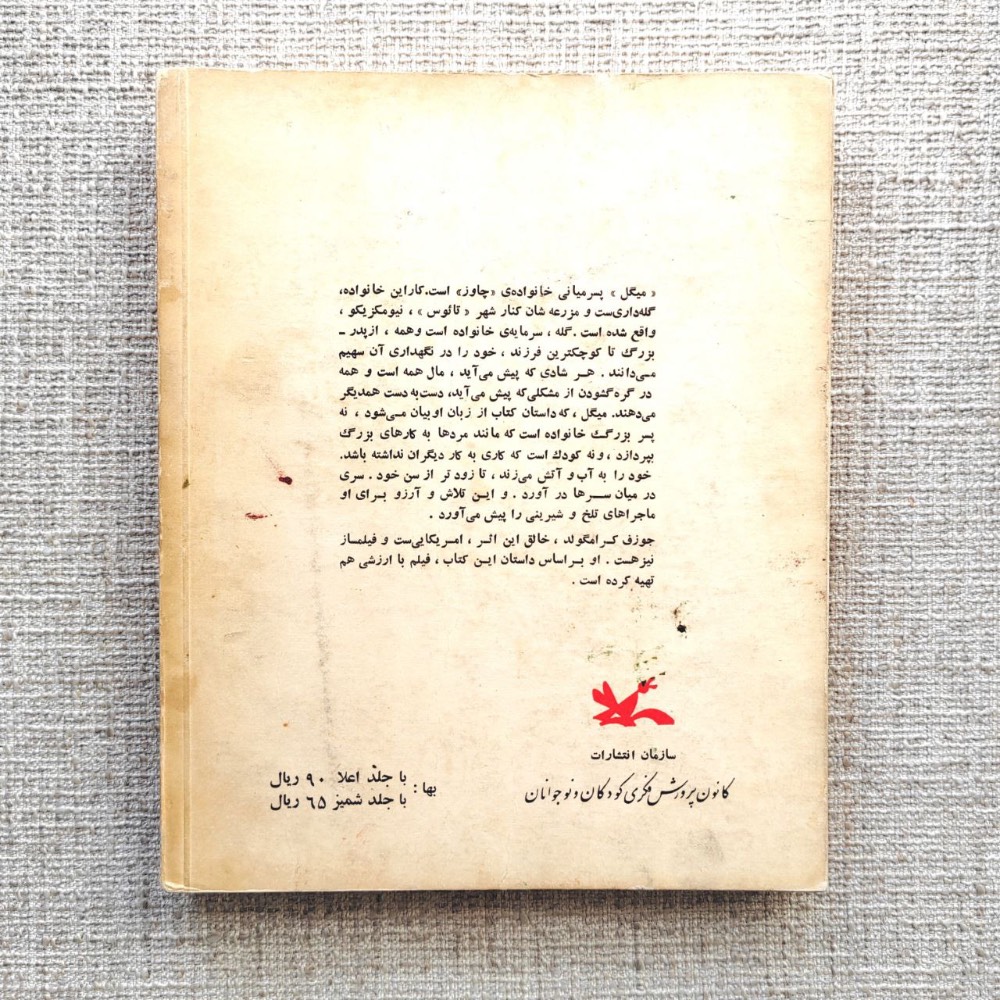 « میگل » پسر میانی خانواده‌ی «چاوز» است. کار این خانواده،
گله‌داری‌ست و مزرعه شان کنار شهر « تائوس » ، نیومکزیکو ،
واقع شده است . گله ، سرمایه‌ی خانواده است و همه ، از پدر ـ
بزرگ تا کوچکترین فرزند ، خود را در نگهداری آن سهیم
می‌دانند . هر شادی که پیش می‌آید ، مال همه است و همه
در گره گشودن از مشکلی که پیش می‌آید، دست به دست همدیگر
می‌دهند. میگل ، که داستان کتاب از زبان او بیان می‌شود ، نه
پسر بزرگ خانواده است که مانند مردها به کارهای بزرگ
بپردازد ، و نه کودک است که کاری به کار دیگران نداشته باشد.
خود را به آب و آتش می‌زند ، تا زود تر از سن خود . سری
در میان سرها در آورد . و این تلاش و آرزو برای او
ماجراهای تلخ و شیرینی را پیش می‌آورد .
جوزف کرامگولد ، خالق این اثر ، امریکایی‌ست و فیلمساز
نیز هست . او بر اساس داستان این کتاب ، فیلم با ارزشی هم
تهیه کرده است .
سازمان انتشارات
کانون پرورش فکری کودکان و نوجوانان
بها : با جلد اعلا ۹۰ ریال
با جلد شمیز ۶۵ ریال